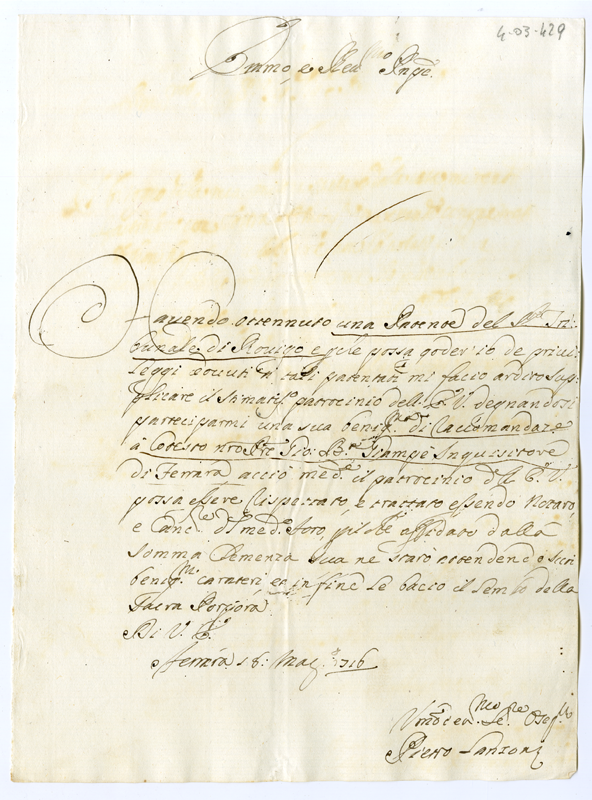 4-03-429
Emmo, e Reumo Prnpe.
Hauendo ottennuto una Patente del Sto. Tri:
bunale di Rouigo e pche possa goder io de priui:
leggi douuti à tali patentati mi facio ardito sup:
plicare il stimatiso. patrocinio dell. E. V. degnandosi
parteciparmi una sua benigma. di Raccomandaze
à Cotesto nro Pre Gio: Bta. Inquisitore
di Ferrara acciò medte. il patrocinio dll' E. V.
possa essere rispettato, e trattato essendo Notaro,
e Cance. dl med.o foro, affidato dalla
somma Clemenza sua ne starò attendendo i suoi
benigmi. carateri, et in fine le bacio il lembo della
Sacra Porpora
Di V. E.
Ferrara 18: Mago. 1716
Umo Deu.mo Se.re Osseq.mo
Pietro Lanzoni